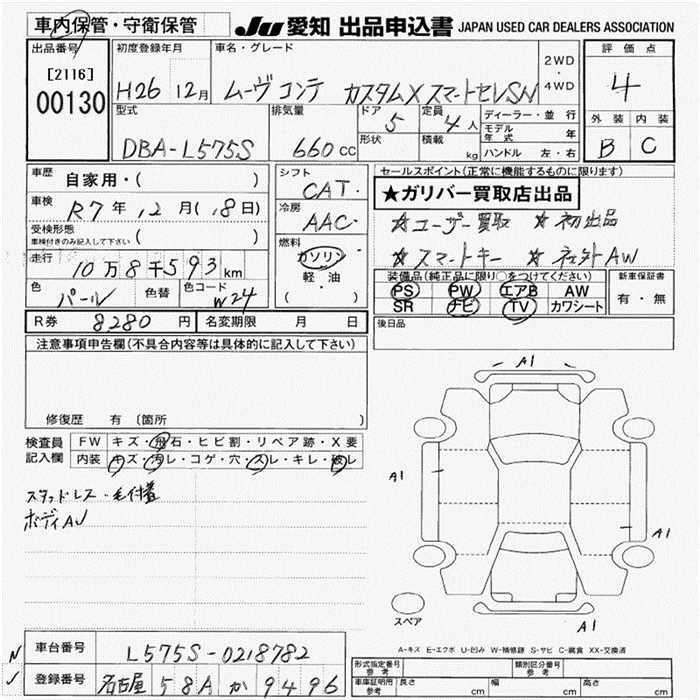 車内保管・守衛保管
JU 愛知 出品申込書 JAPAN USED CAR DEALERS ASSOCIATION
出品番号 初度登録年月 車名・グレード 2WD・4WD 評価点
[2116] H26 12月 ムーヴ コンテ カスタムX スマートセレSN 4
00130
型式 排気量 ドア 5 定員 4人 ディーラー・並行 外装 内装
DBA-L575S 660cc 形状 積載 kg モデル年式 年 B C
ハンドル 左・右
車歴 自家用・( ) シフト CAT. セールスポイント(正常に機能するものに限ります)
車検 R7年 12月(18日) 冷房 AAC. ★ガリバー買取店出品
受検形態 ( ) ☆ユーザー買取 ☆初出品
車検付きのみ記入して下さい 燃料 ☆スマートキー ☆社外AW
走行 10万8千593km ガソリン 装備品(純正品に限り○をつけてください) 新車保証書
軽・油 PS PW エアB AW 有・無
色 パール 色替 色コード W24 ( ) SR ナビ TV カワシート
R券 8280円 名変期限 月 日 後日品
注意事項申告欄(不具合内容等は具体的に記入して下さい)
修復歴 有 〔箇所 〕
検査員記入欄 FW キズ・飛石・ヒビ割・リペア跡・X要
内装 キズ・汚レ・コゲ・穴・スレ・キレ・破レ
スタッドレス・毛付着
ボディAJ
A1
A1
A1
A1
スペア
A-キズ E-エクボ U-凹み W-補修跡 S-サビ C-腐食 XX-交換済
N 車台番号 L575S-0218782
J 登録番号 名古屋 58A か 9496
形式指定番号 参考 類別区分番号 参考
車庫証明用 参考 長さ cm 幅 cm 高さ cm